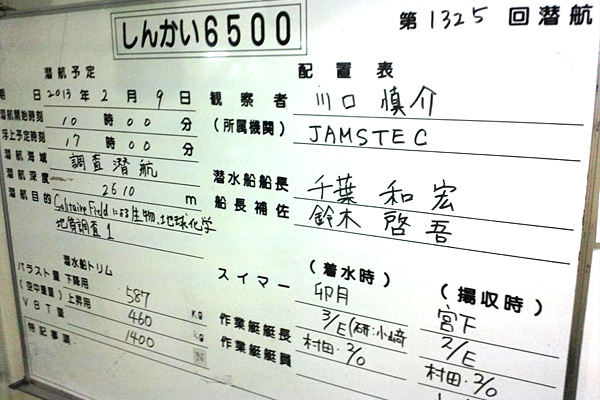 しんかい6500
第1325回潜航
潜航予定
配置表
期 日 2013年2月9日
観察者 川口 慎介
潜航開始時刻 10時00分
(所属機関) JAMSTEC
浮上予定時刻 17時00分
潜航海域 調査潜航
潜水船船長 千葉 和宏
潜航深度 2610 m
船長補佐 鈴木 啓吾
潜航目的 Solitaire Fieldによる生物、地球化学
地質調査1
潜水船トリム
(着水時) (揚収時)
バラスト量 下降用 587 kg
スイマー 卯月 宮下
(空中重量) 上昇用 460 kg
作業艇艇長 3/E(研:小崎 2/E
VBT量 1400 N
作業艇艇員 村田・2/O 村田・2/O
特記事項